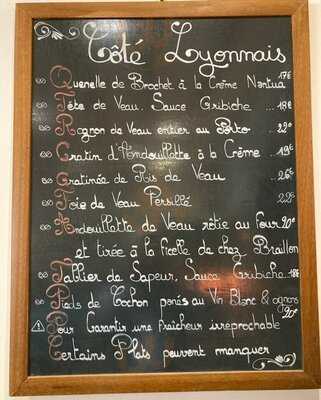 Côté Lyonnais
Quenelle de Brochet à la Crème Nantua 17€
Tête de Veau, Sauce Gribiche ... 18€
Rognon de Veau entier au Porto .. 22€
Gratin d'Andouillette à la Crème .. 19€
Gratinée de Ris de Veau ... 26€
Foie de Veau Persillé 22€
Andouillette de Veau rôtie au four 20€
et tirée à la ficelle de chez Braillon
Tablier de Sapeur, Sauce Gribiche 18€
Pieds de Cochon panés au Vin Blanc & oignons
20€
Pour Garantir une fraîcheur irreprochable
Certains Plats peuvent manquer